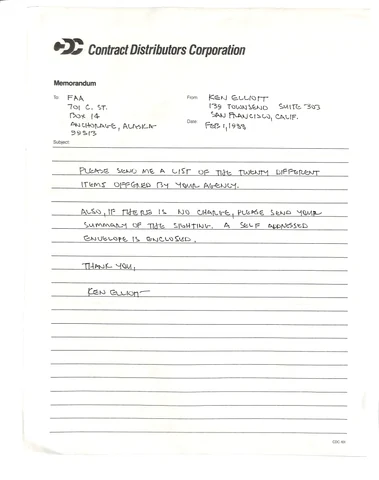 CDC Contract Distributors Corporation
Memorandum
To FAA
701 C. ST.
BOX 14
ANCHORAGE, ALASKA
99513
From KEN ELLIOTT
139 TOWNSEND SUITE 303
SAN FRANCISCO, CALIF.
Date FEB 1, 1988
Subject
PLEASE SEND ME A LIST OF THE TWENTY DIFFERENT
ITEMS OFFERED BY YOUR AGENCY.
ALSO, IF THERE IS NO CHARGE, PLEASE SEND YOUR
SUMMARY OF THE SIGHTING. A SELF ADDRESSED
ENVELOPE IS ENCLOSED.
THANK YOU,
KEN ELLIOTT